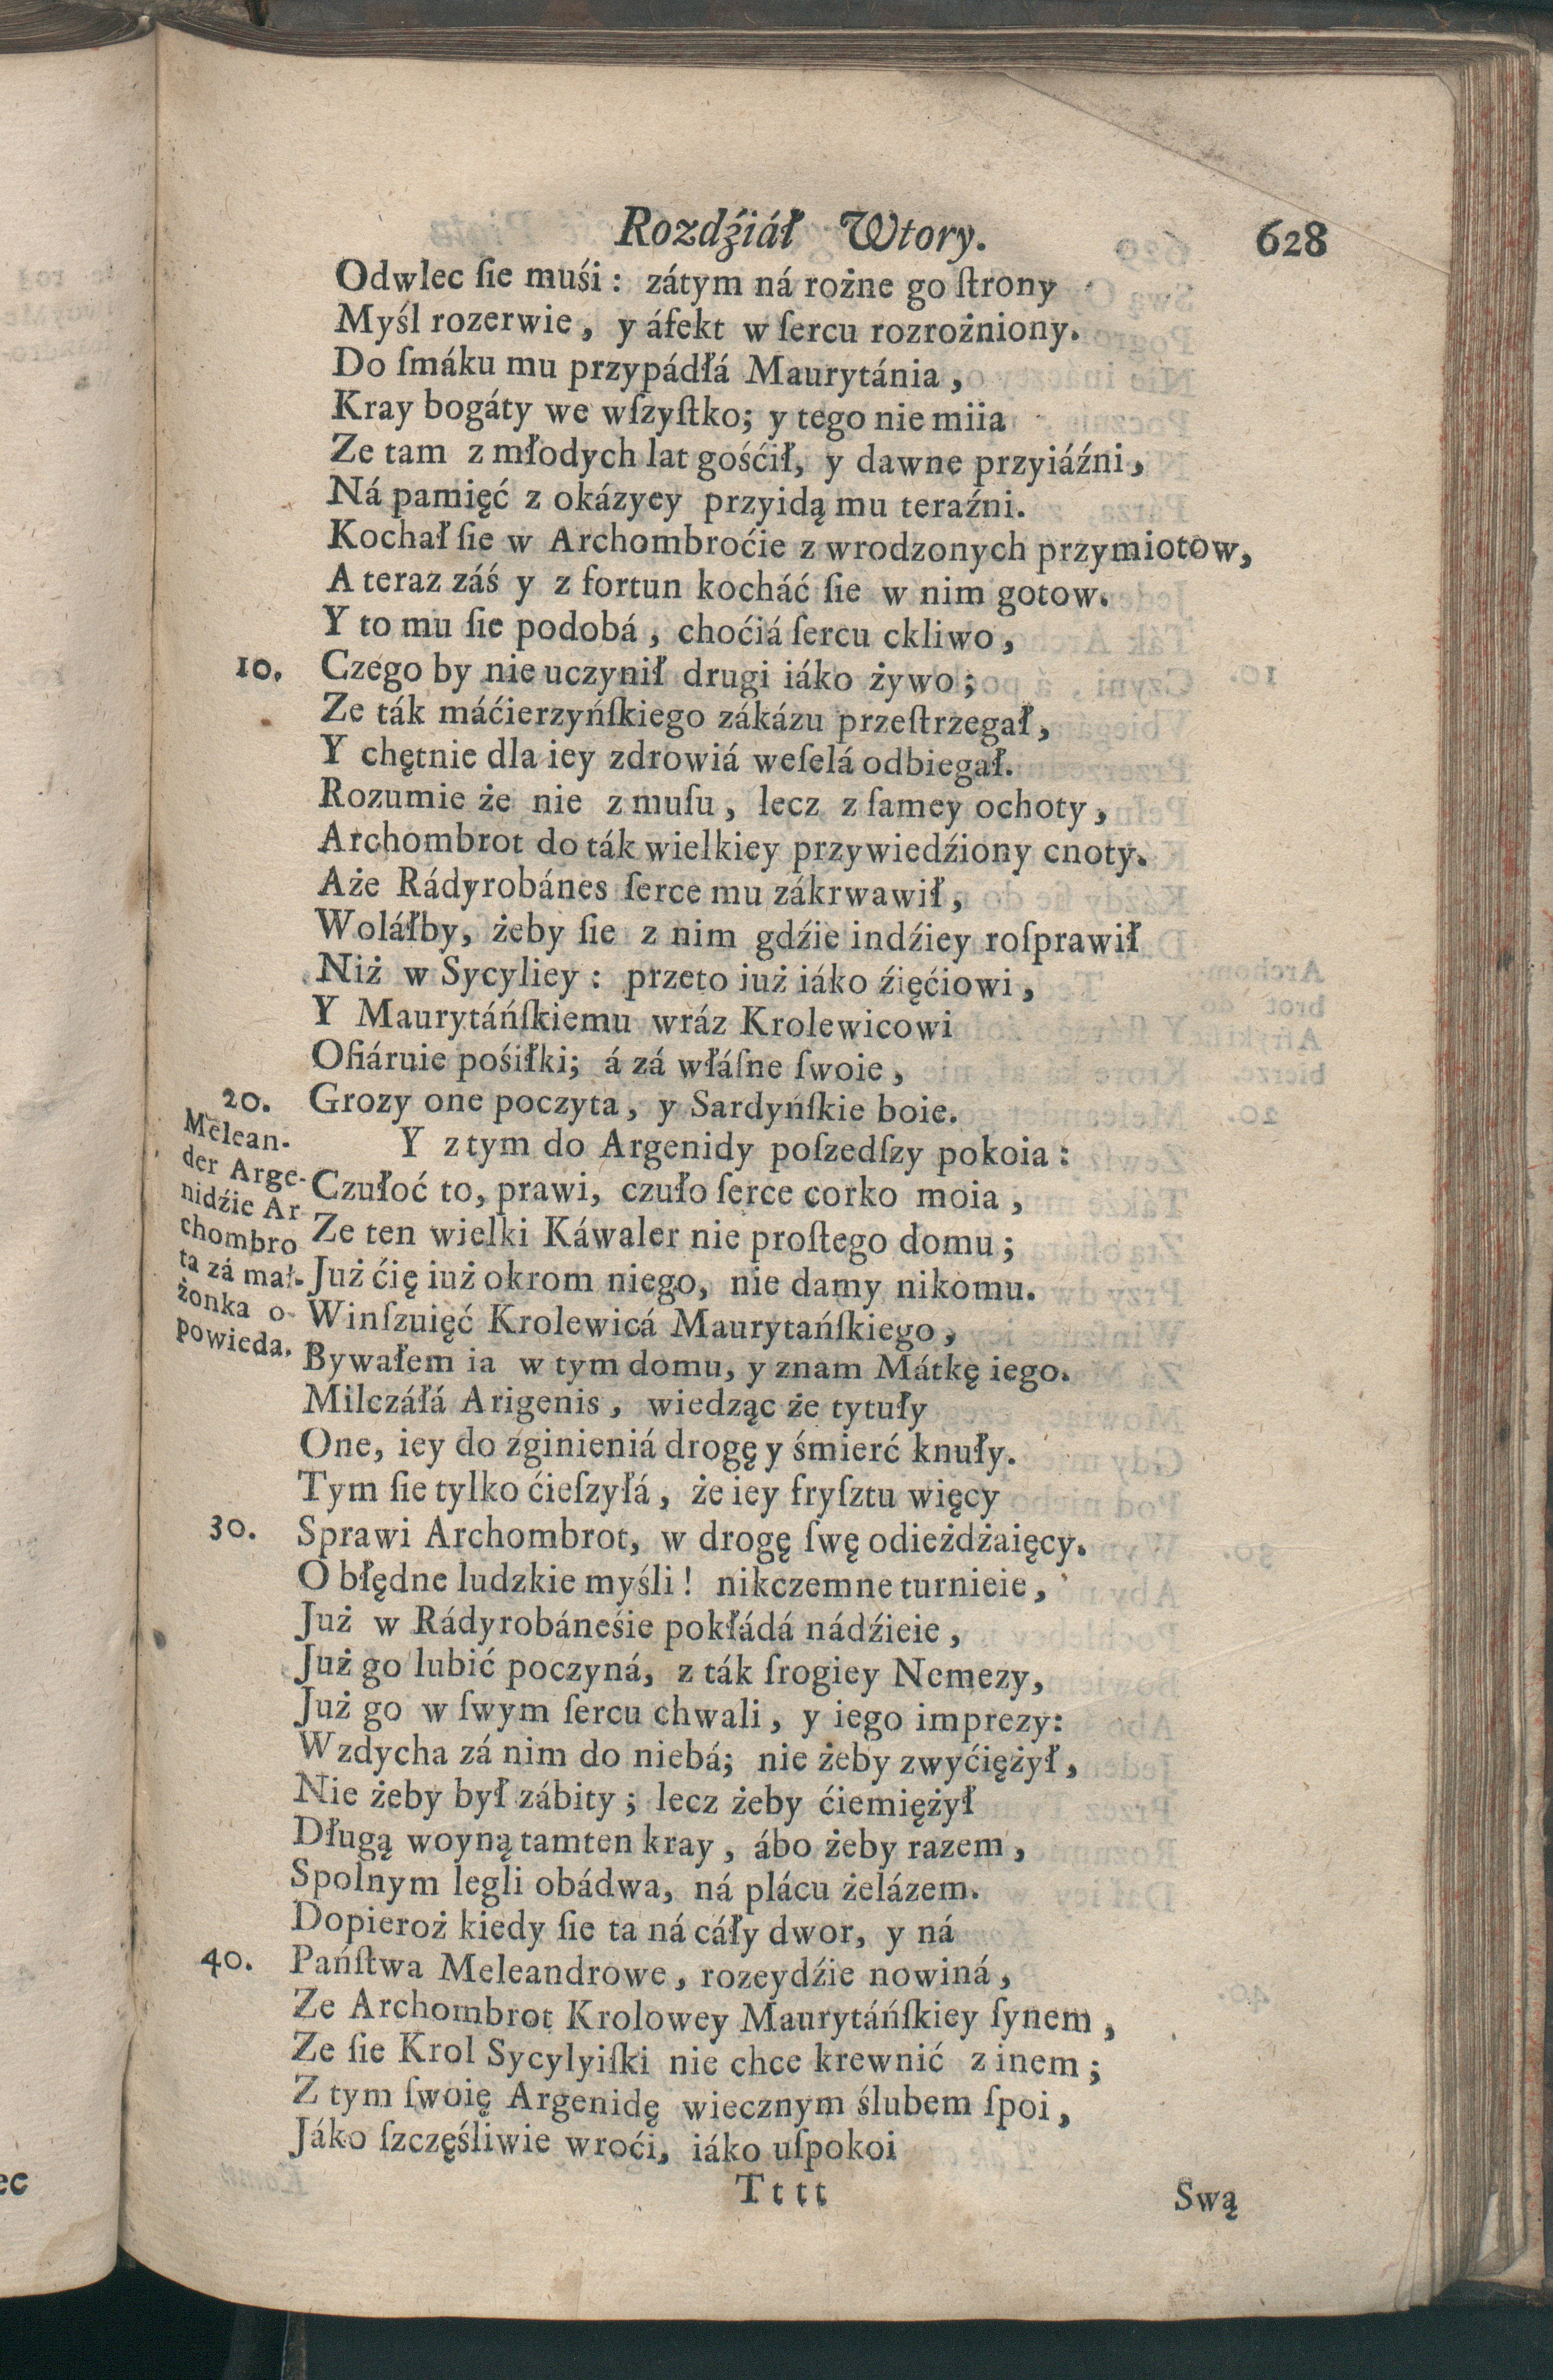 Rozdźiáł Wtory. 628
Odwlec ſie muśi : zátym ná rożne go ſtrony
Myśl rozerwie , y áfekt w ſercu rozrożniony.
Do ſmáku mu przypádłá Maurytánia ,
Kray bogáty we wſzyſtko; y tego nie miia
Ze tam z młodych lat gośćił, y dawne przyiáźni ,
Ná pamięć z okázyey przyidą mu teraźni.
Kochał ſie w Archombroćie z wrodzonych przymiotow,
A teraz záś y z fortun kocháć ſie w nim gotow.
Y to mu ſie podobá , choćiá ſercu ckliwo ,
10. Czego by nie uczynił drugi iáko żywo ;
Ze ták máćierzyńſkiego zákázu przeſtrzegał ,
Y chętnie dla iey zdrowiá weſelá odbiegał.
Rozumie że nie z muſu , lecz z ſamey ochoty ,
Archombrot do ták wielkiey przywiedźiony cnoty.
Aże Rádyrobánes ſerce mu zákrwawił ,
Woláłby, żeby ſie z nim gdźie indźiey roſprawił
Niż w Sycyliey : przeto iuż iáko źięćiowi ,
Y Maurytáńſkiemu wráz Krolewicowi
Ofiáruie pośiłki; á zá włáſne ſwoie ,
20. Grozy one poczyta , y Sardyńſkie boie.
Melean-
der Arge-
nidźie Ar
chombro
ta zá mał-
żonka o-
powieda.
Y z tym do Argenidy poſzedſzy pokoia :
Czułoć to, prawi, czuło ſerce corko moia ,
Ze ten wielki Káwaler nie proſtego domu ;
Już ćię iuż okrom niego, nie damy nikomu.
Winſzuięć Krolewicá Maurytańſkiego ,
Bywałem ia w tym domu, y znam Mátkę iego.
Milczáłá Arigenis , wiedząc że tytuły
One, iey do zginieniá drogę y śmierć knuły.
Tym ſie tylko ćieſzyłá , że iey fryſztu więcy
30. Sprawi Archombrot, w drogę ſwę odieżdżaięcy.
O błędne ludzkie myśli ! nikczemne turnieie ,
Już w Rádyrobáneśie pokłádá nádźieie ,
Już go lubić poczyná, z ták ſrogiey Nemezy,
Już go w ſwym ſercu chwali , y iego imprezy:
Wzdycha zá nim do niebá; nie żeby zwyćiężył ,
Nie żeby był zábity ; lecz żeby ćiemiężył
Długą woyną tamten kray , ábo żeby razem ,
Spolnym legli obádwa, ná plácu żelázem.
Dopieroż kiedy ſie ta ná cáły dwor, y ná
40. Pańſtwa Meleandrowe , rozeydźie nowiná ,
Ze Archombrot Krolowey Maurytáńſkiey ſynem ,
Ze ſie Krol Sycylyiſki nie chce krewnić z inem ;
Z tym ſwoię Argenidę wiecznym ślubem ſpoi ,
Jáko ſzczęśliwie wroći, iáko uſpokoi
Tttt Swą